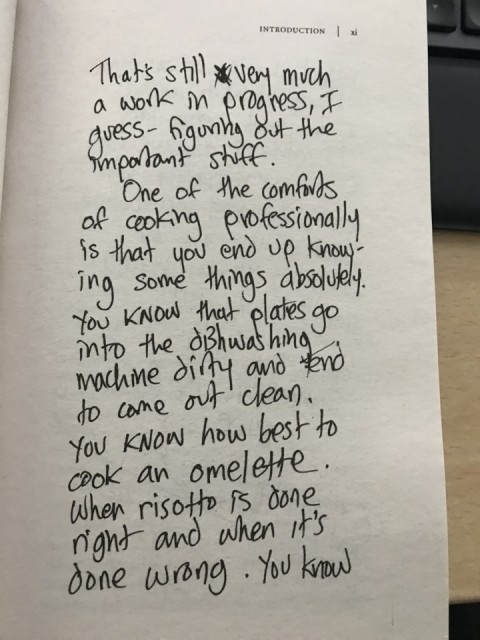 INTRODUCTION | xi
That's still very much
a work in progress, I
guess- figuring out the
important stuff.
One of the comforts
of cooking professionally
is that you end up know-
ing some things absolutely.
You KNOW that plates go
into the dishwashing
machine dirty and tend
to come out clean.
YOU KNOW how best to
cook an omelette.
When risotto is done
right and when it's
done wrong. You know